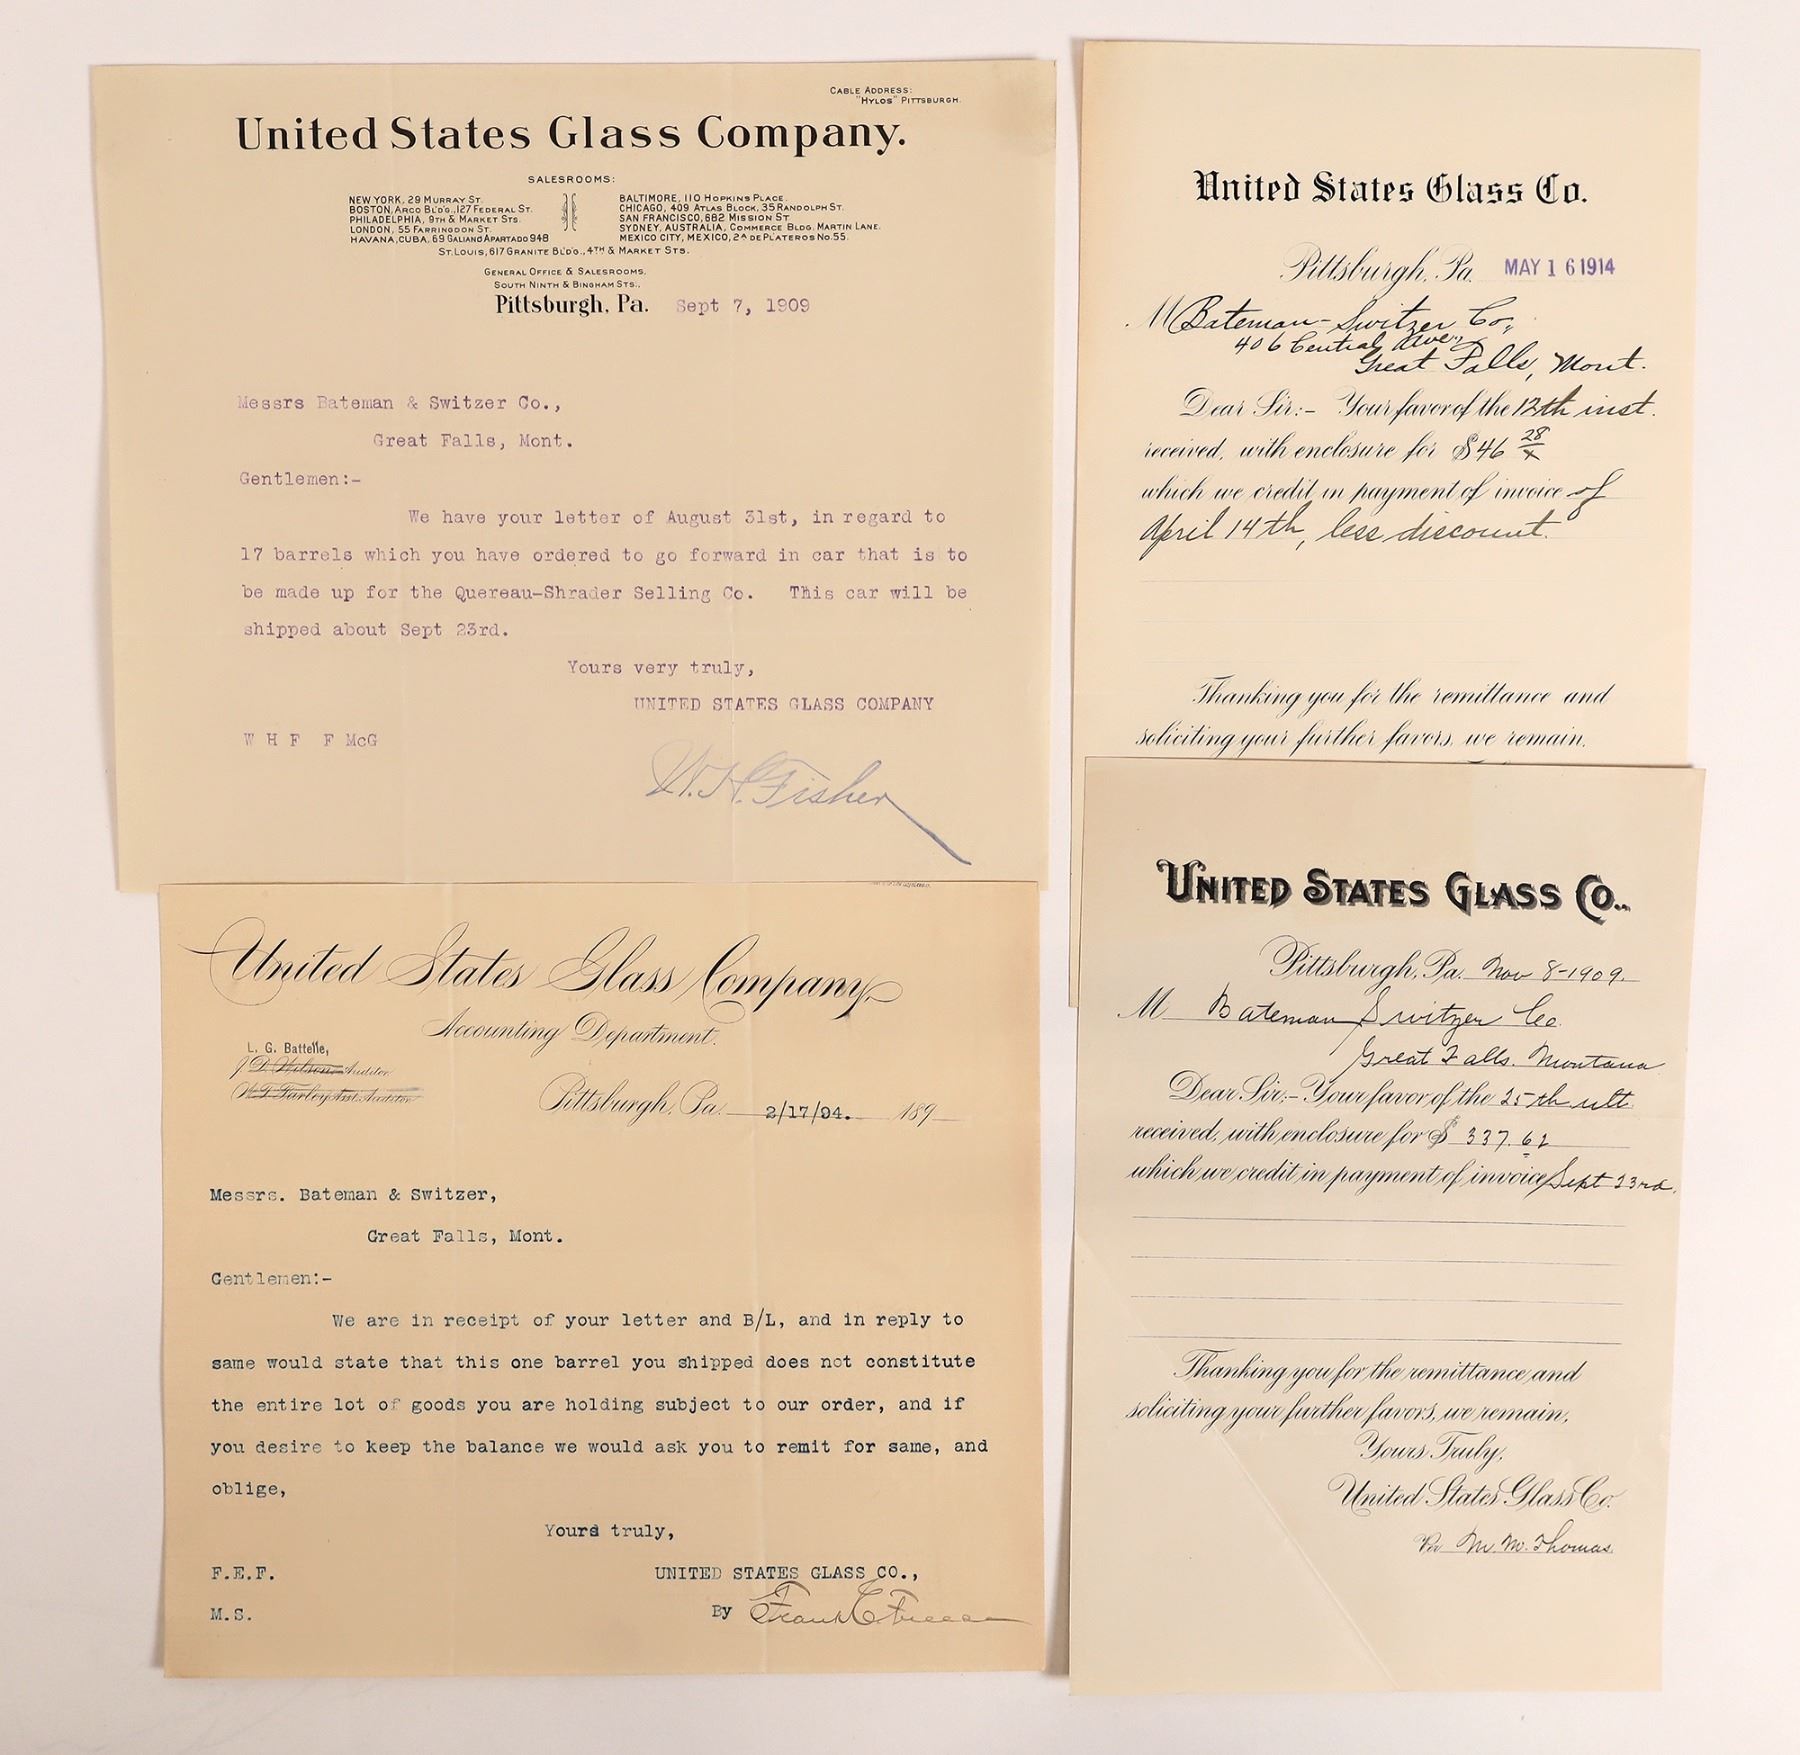 CABLE ADDRESS:
"HYLOS" PITTSBURGH.
United States Glass Company.
SALESROOMS:
NEW YORK, 29 MURRAY ST.
BOSTON, ARCO BL'D'G., 127 FEDERAL ST.
PHILADELPHIA, 9TH & MARKET STS.
LONDON, 55 FARRINGDON ST.
HAVANA, CUBA, 69 GALIANO APARTADO 948
BALTIMORE, 110 HOPKINS PLACE.
CHICAGO, 409 ATLAS BLOCK, 35 RANDOLPH ST.
SAN FRANCISCO, 682 MISSION ST
SYDNEY, AUSTRALIA, COMMERCE BLDG. MARTIN LANE.
MEXICO CITY, MEXICO, 2A DE PLATEROS NO. 55.
ST. LOUIS, 617 GRANITE BL'D'G., 4TH & MARKET STS.
GENERAL OFFICE & SALESROOMS,
SOUTH NINTH & BINGHAM STS.,
Pittsburgh, Pa. Sept 7, 1909
Messrs Bateman & Switzer Co.,
Great Falls, Mont.
Gentlemen:-
We have your letter of August 31st, in regard to
17 barrels which you have ordered to go forward in car that is to
be made up for the Quereau-Shrader Selling Co. This car will be
shipped about Sept 23rd.
Yours very truly,
UNITED STATES GLASS COMPANY
W H F F McG
W. H. Fisher
United States Glass Co.
Pittsburgh, Pa. MAY 16 1914
M Bateman-Switzer Co,
406 Central Ave,
Great Falls, Mont.
Dear Sir:- Your favor of the 12th inst.
received, with enclosure for $46 28/x
which we credit in payment of invoice of
April 14th, less discount.
Thanking you for the remittance and
soliciting your further favors, we remain,
United States Glass Company,
Accounting Department.
L. G. Battelle,
J D Wilson Auditor
W. F. Farley Asst. Auditor
Pittsburgh, Pa. 2/17/94. 189
Messrs. Bateman & Switzer,
Great Falls, Mont.
Gentlemen:-
We are in receipt of your letter and B/L, and in reply to
same would state that this one barrel you shipped does not constitute
the entire lot of goods you are holding subject to our order, and if
you desire to keep the balance we would ask you to remit for same, and
oblige,
Yours truly,
F.E.F. UNITED STATES GLASS CO.,
M.S. By Frank E. Freese
UNITED STATES GLASS CO.,
Pittsburgh, Pa. Nov 8-1909.
M Bateman Switzer Co.
Great Falls. Montana
Dear Sir:- Your favor of the 25th ult.
received, with enclosure for $ 337.62
which we credit in payment of invoice Sept 23rd.
Thanking you for the remittance and
soliciting your further favors, we remain,
Yours Truly,
United States Glass Co.
Per M. M. Thomas